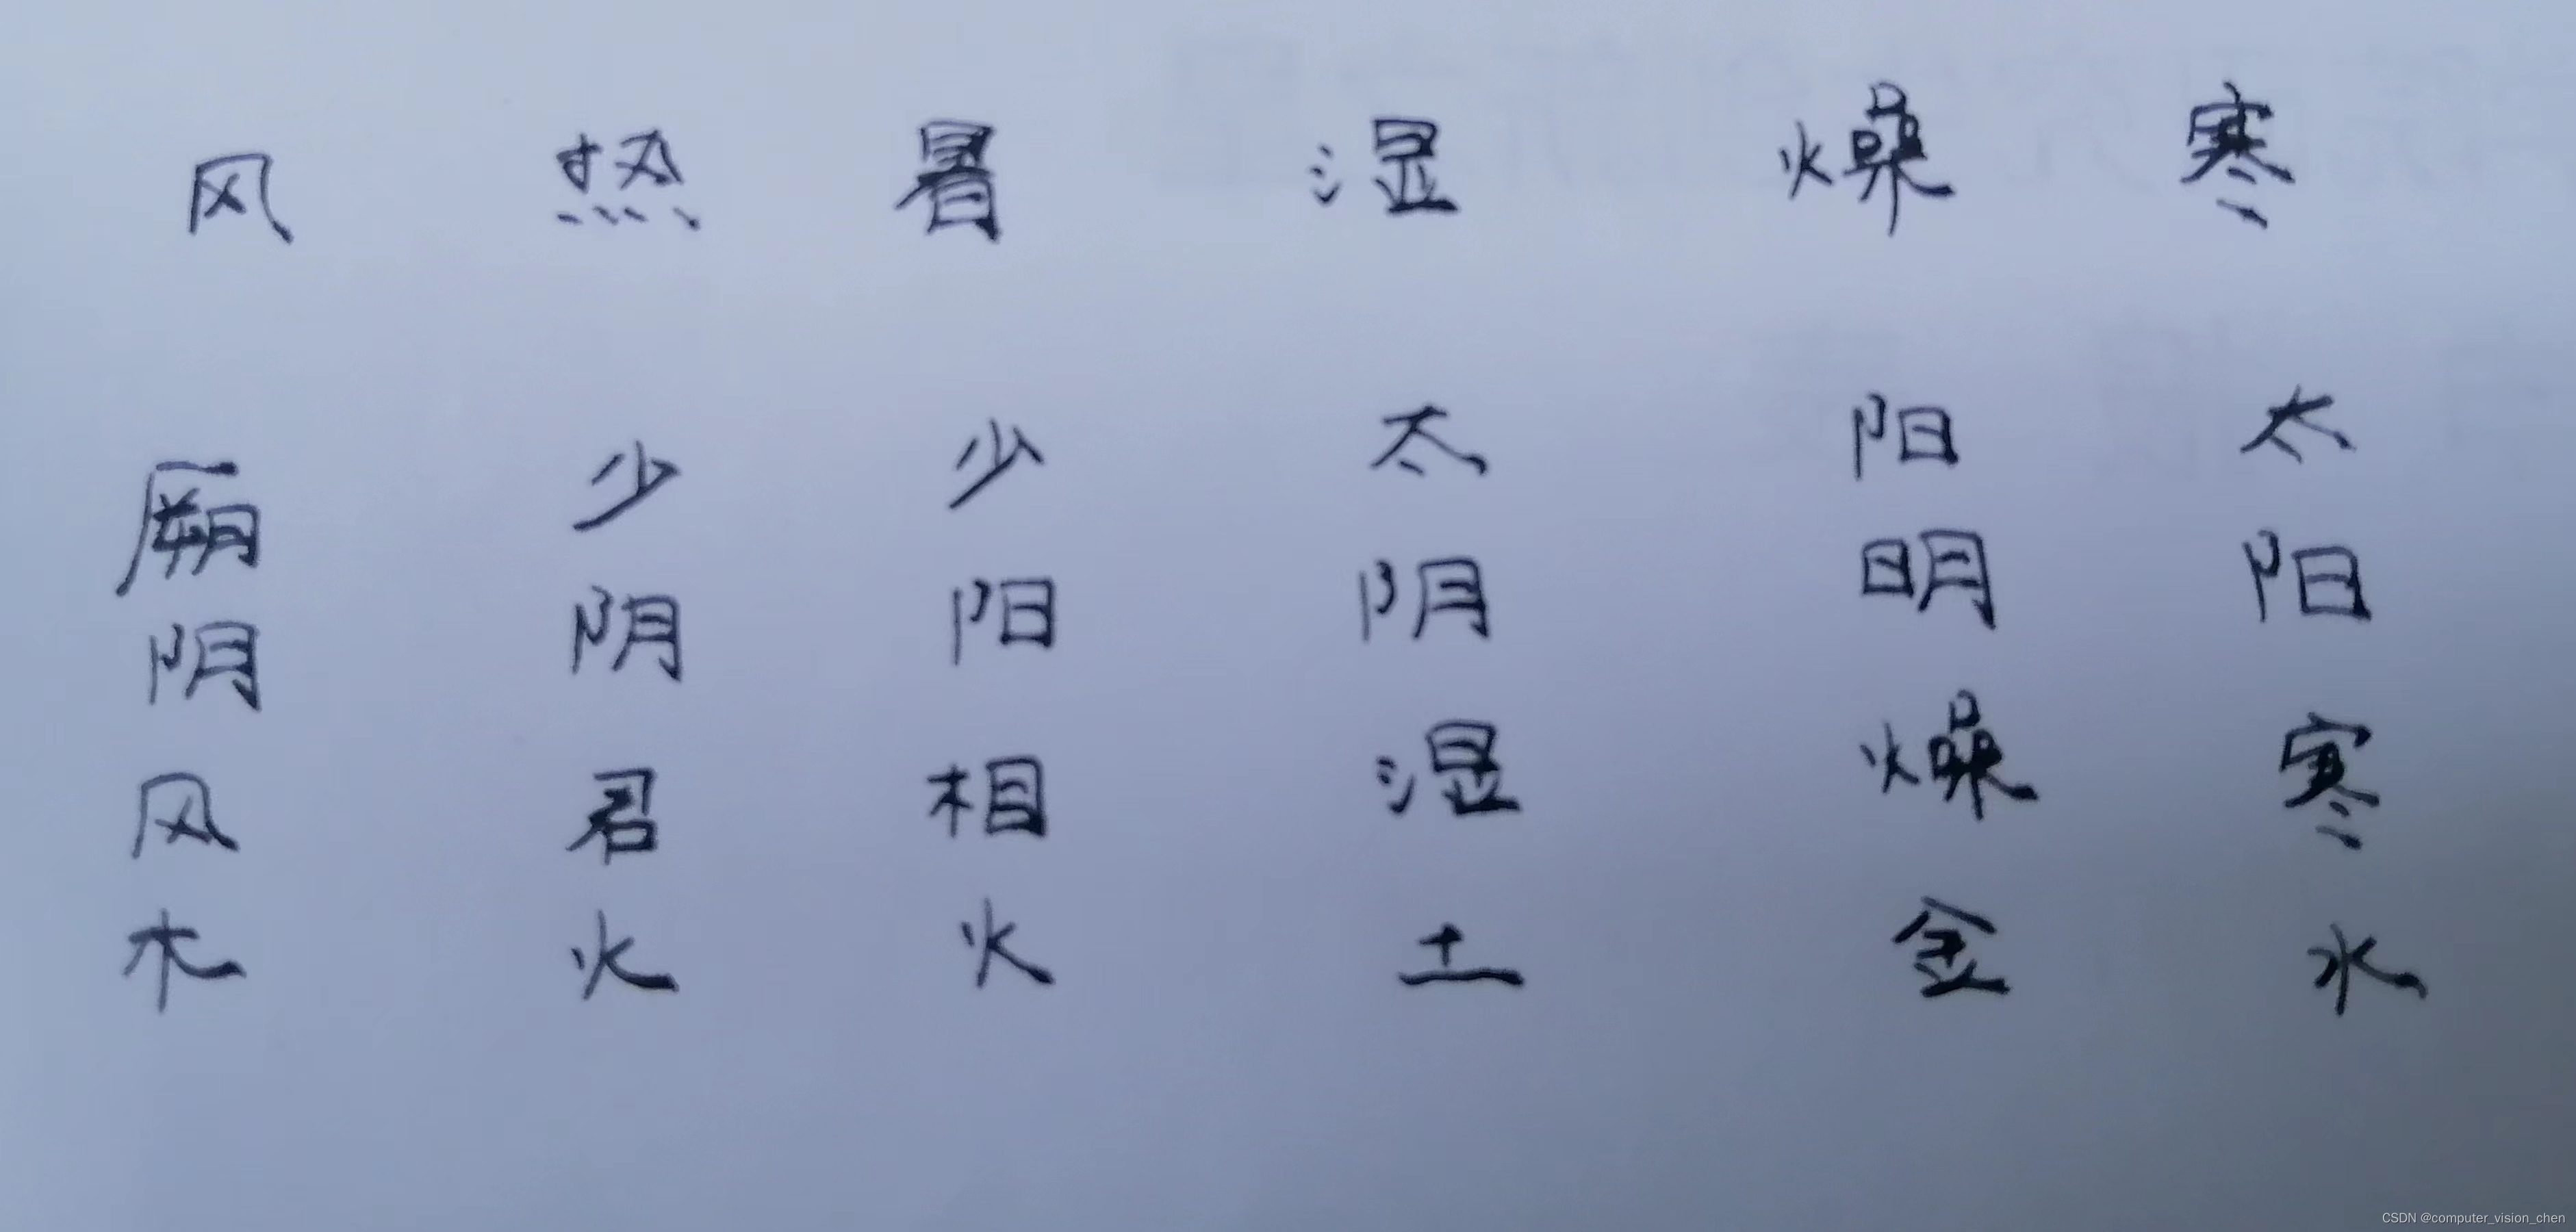 风 热 暑 湿 燥 寒
厥阴风木
少阴君火
少阳相火
太阴湿土
阳明燥金
太阳寒水
CSDN @computer_vision_chen